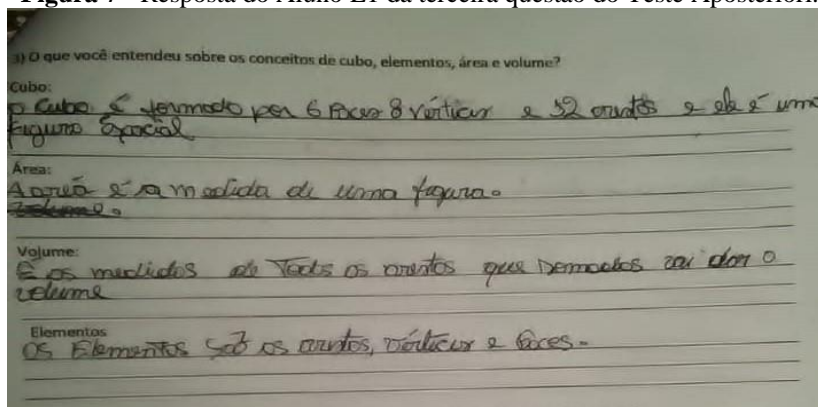 Figura 7 - Resposta do Aluno E1 da terceira questão do Teste Aposteriori.
3) O que você entendeu sobre os conceitos de cubo, elementos, área e volume?
Cubo:
O cubo é formado por 6 faces 8 vértices e 12 arestas e ele é uma
Figura Espacial
Área:
A area é a medida de uma figura.
Volume:
É os medidos de Todos os arestas que vai dar o
volume
Elementos
OS Elementos São os arestas, vértices e faces.